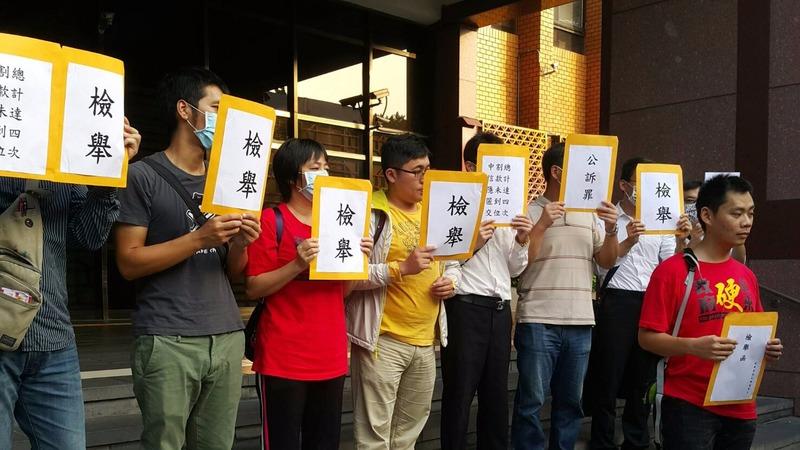 割款未到位
總計達四次
檢舉
檢舉
檢舉
檢舉
中信應匯交
割款未到位
總計達四次
公訴罪
檢舉
硬
檢舉函